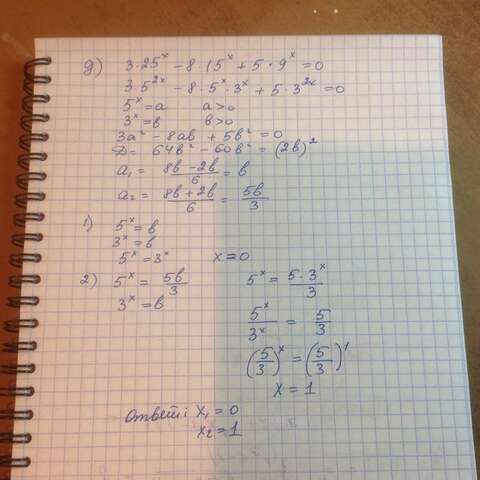 д) 3·25^x - 8·15^x + 5·9^x = 0
3·5^2x - 8·5^x·3^x + 5·3^2x = 0
5^x = a   a>0
3^x = b   b>0
3a² - 8ab + 5b² = 0
D = 64b² - 60b² = (2b)²
a₁ = (8b - 2b)/6 = b
a₂ = (8b + 2b)/6 = 5b/3
1) 5^x = b
3^x = b
5^x = 3^x   x = 0
2) 5^x = 5b/3
3^x = b
5^x = 5·3^x/3
5^x/3^x = 5/3
(5/3)^x = (5/3)^1
x = 1
Ответ: x₁ = 0
x₂ = 1